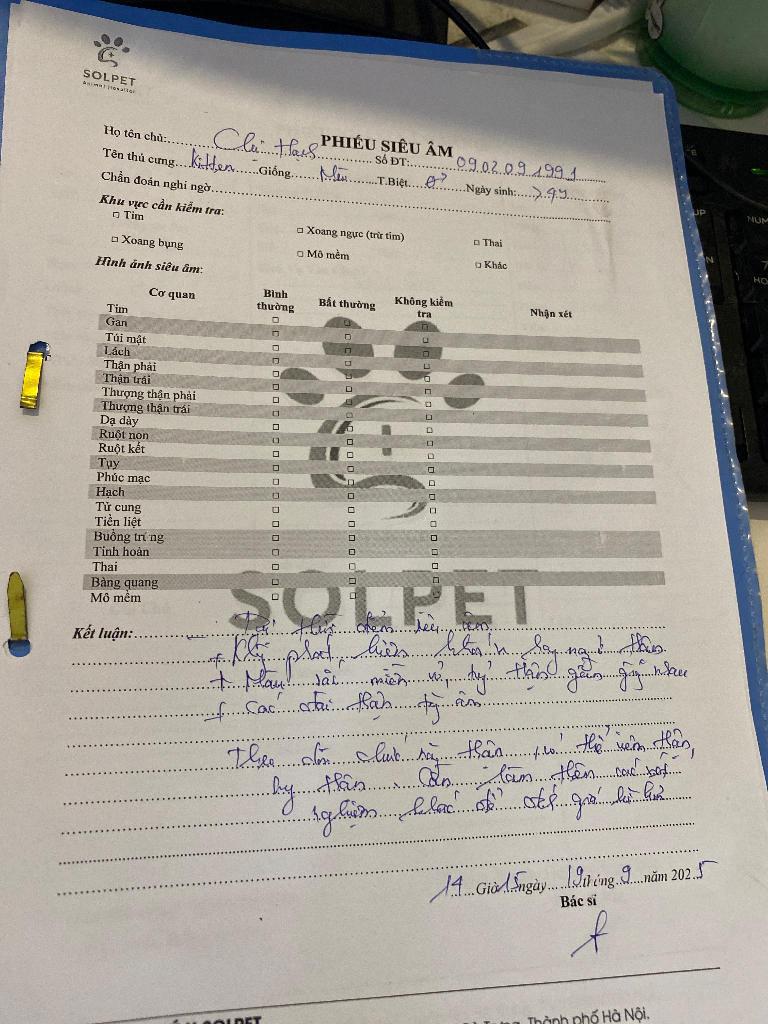 SOLPET
Animal Hospital
PHIẾU SIÊU ÂM
Họ tên chủ: Số ĐT: 0902091991
Tên thú cưng Kitten Giống Mèo T.Biệt ♂ Ngày sinh: >4y
Chẩn đoán nghi ngờ
Khu vực cần kiểm tra:
□ Tim □ Xoang ngực (trừ tim) □ Thai
□ Xoang bụng □ Mô mềm □ Khác
Hình ảnh siêu âm:
Cơ quan Bình thường Bất thường Không kiểm tra Nhận xét
Tim □ □ □
Gan □ □ □
Túi mật □ □ □
Lách □ □ □
Thận phải □ □ □
Thận trái □ □ □
Thượng thận phải □ □ □
Thượng thận trái □ □ □
Dạ dày □ □ □
Ruột non □ □ □
Ruột kết □ □ □
Tụy □ □ □
Phúc mạc □ □ □
Hạch □ □ □
Tử cung □ □ □
Tiền liệt □ □ □
Buồng trứng □ □ □
Tinh hoàn □ □ □
Thai □ □ □
Bàng quang □ □ □
Mô mềm □ □ □
SOLPET
Kết luận: - Tại thời điểm siêu âm
+ phát hiện thận
+ Màu sắc miền vỏ, tủy thận gần giống nhau
+ Các đài thận
Theo dõi chức năng thận, có thể viêm thận,
thận. Cần làm thêm các xét
nghiệm khác để
14 Giờ 15 ngày 19 tháng 9 năm 2025
Bác sĩ
SOLPET
Thành phố Hà Nội.